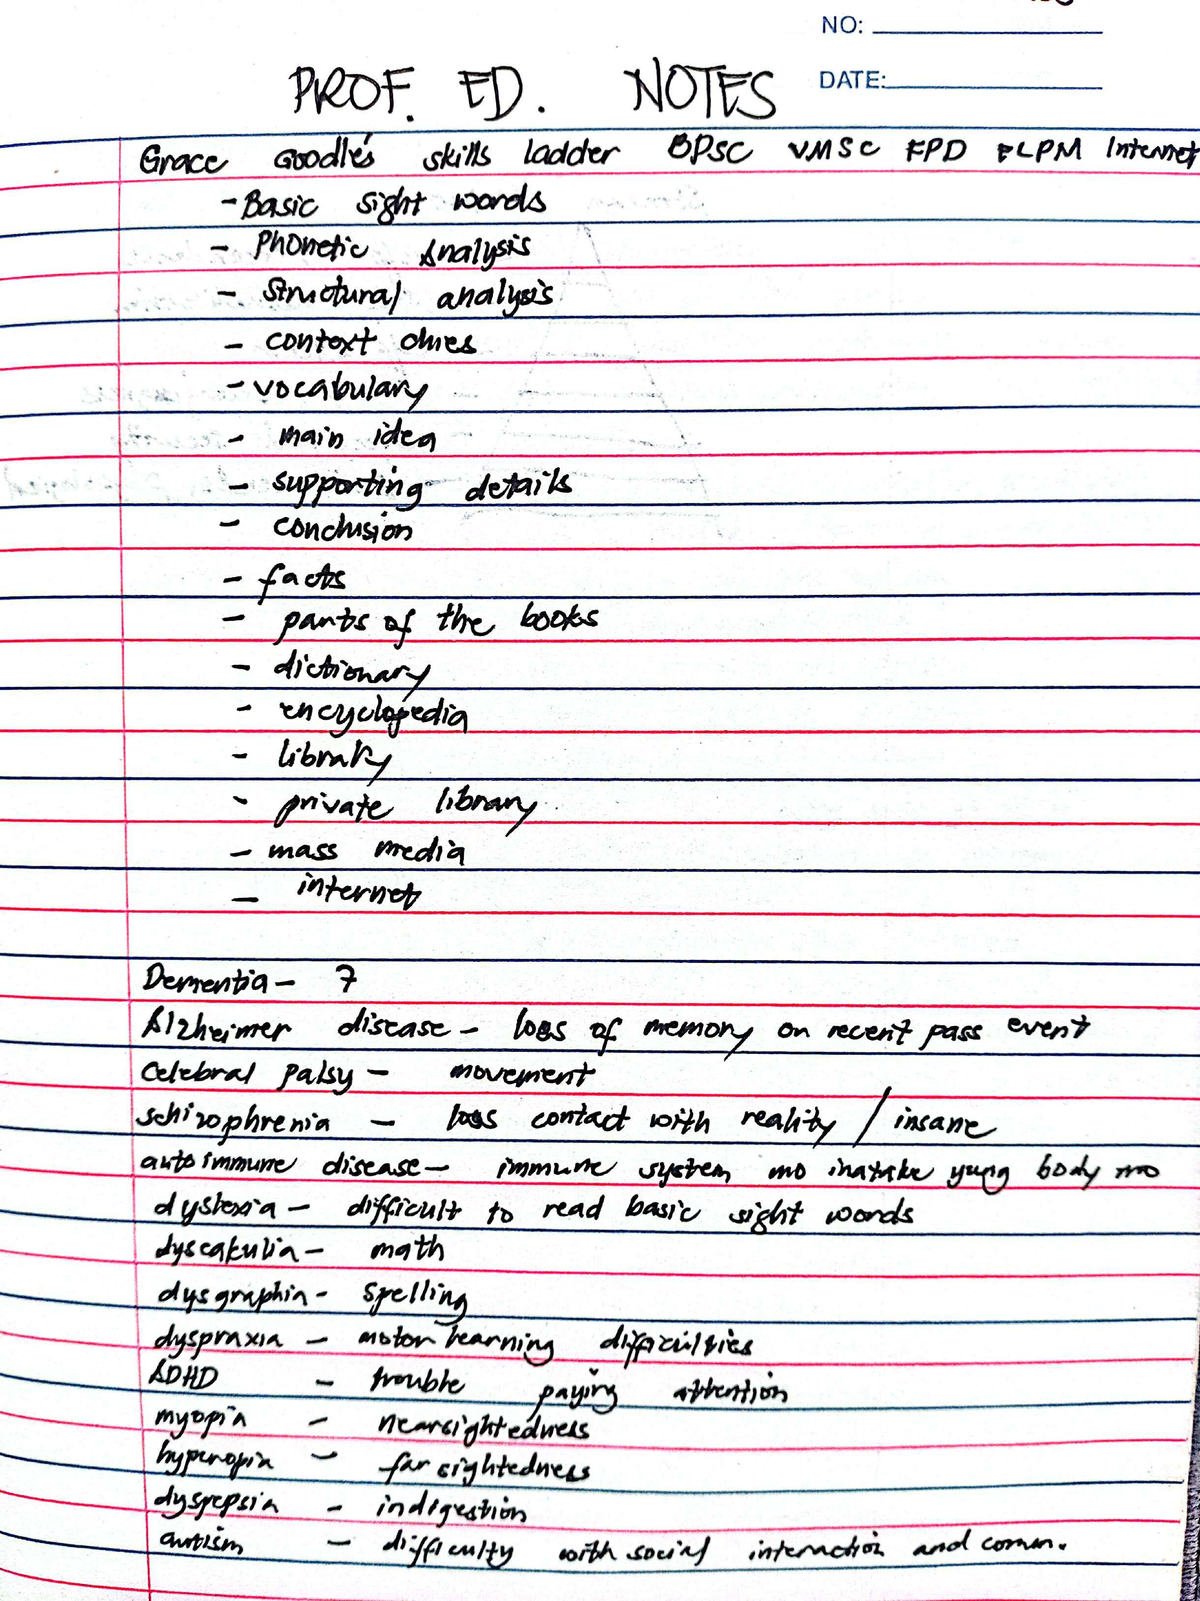 NO:
DATE:
PROF. ED. NOTES
Grace Goodle's skills ladder BPSC VMSC FPD ELPM Internet
- Basic sight words
- Phonetic Analysis
- structural analysis
- context clues
- vocabulary
- main idea
- supporting details
- conclusion
- facts
- parts of the books
- dictionary
- encyclopedia
- library
- private library
- mass media
- internet
Dementia - 7
Alzheimer disease - loss of memory on recent pass event
Celebral palsy - movement
schizophrenia - loss contact with reality / insane
autoimmune disease - immune system mo inatake yung body mo
dyslexia - difficult to read basic sight words
dyscakulia - math
dysgraphia - spelling
dyspraxia - motor learning difficulties
ADHD - trouble paying attention
myopia - nearsightedness
hyperopia - farsightedness
dyspepsia - indigestion
autism - difficulty with social interaction and comm.